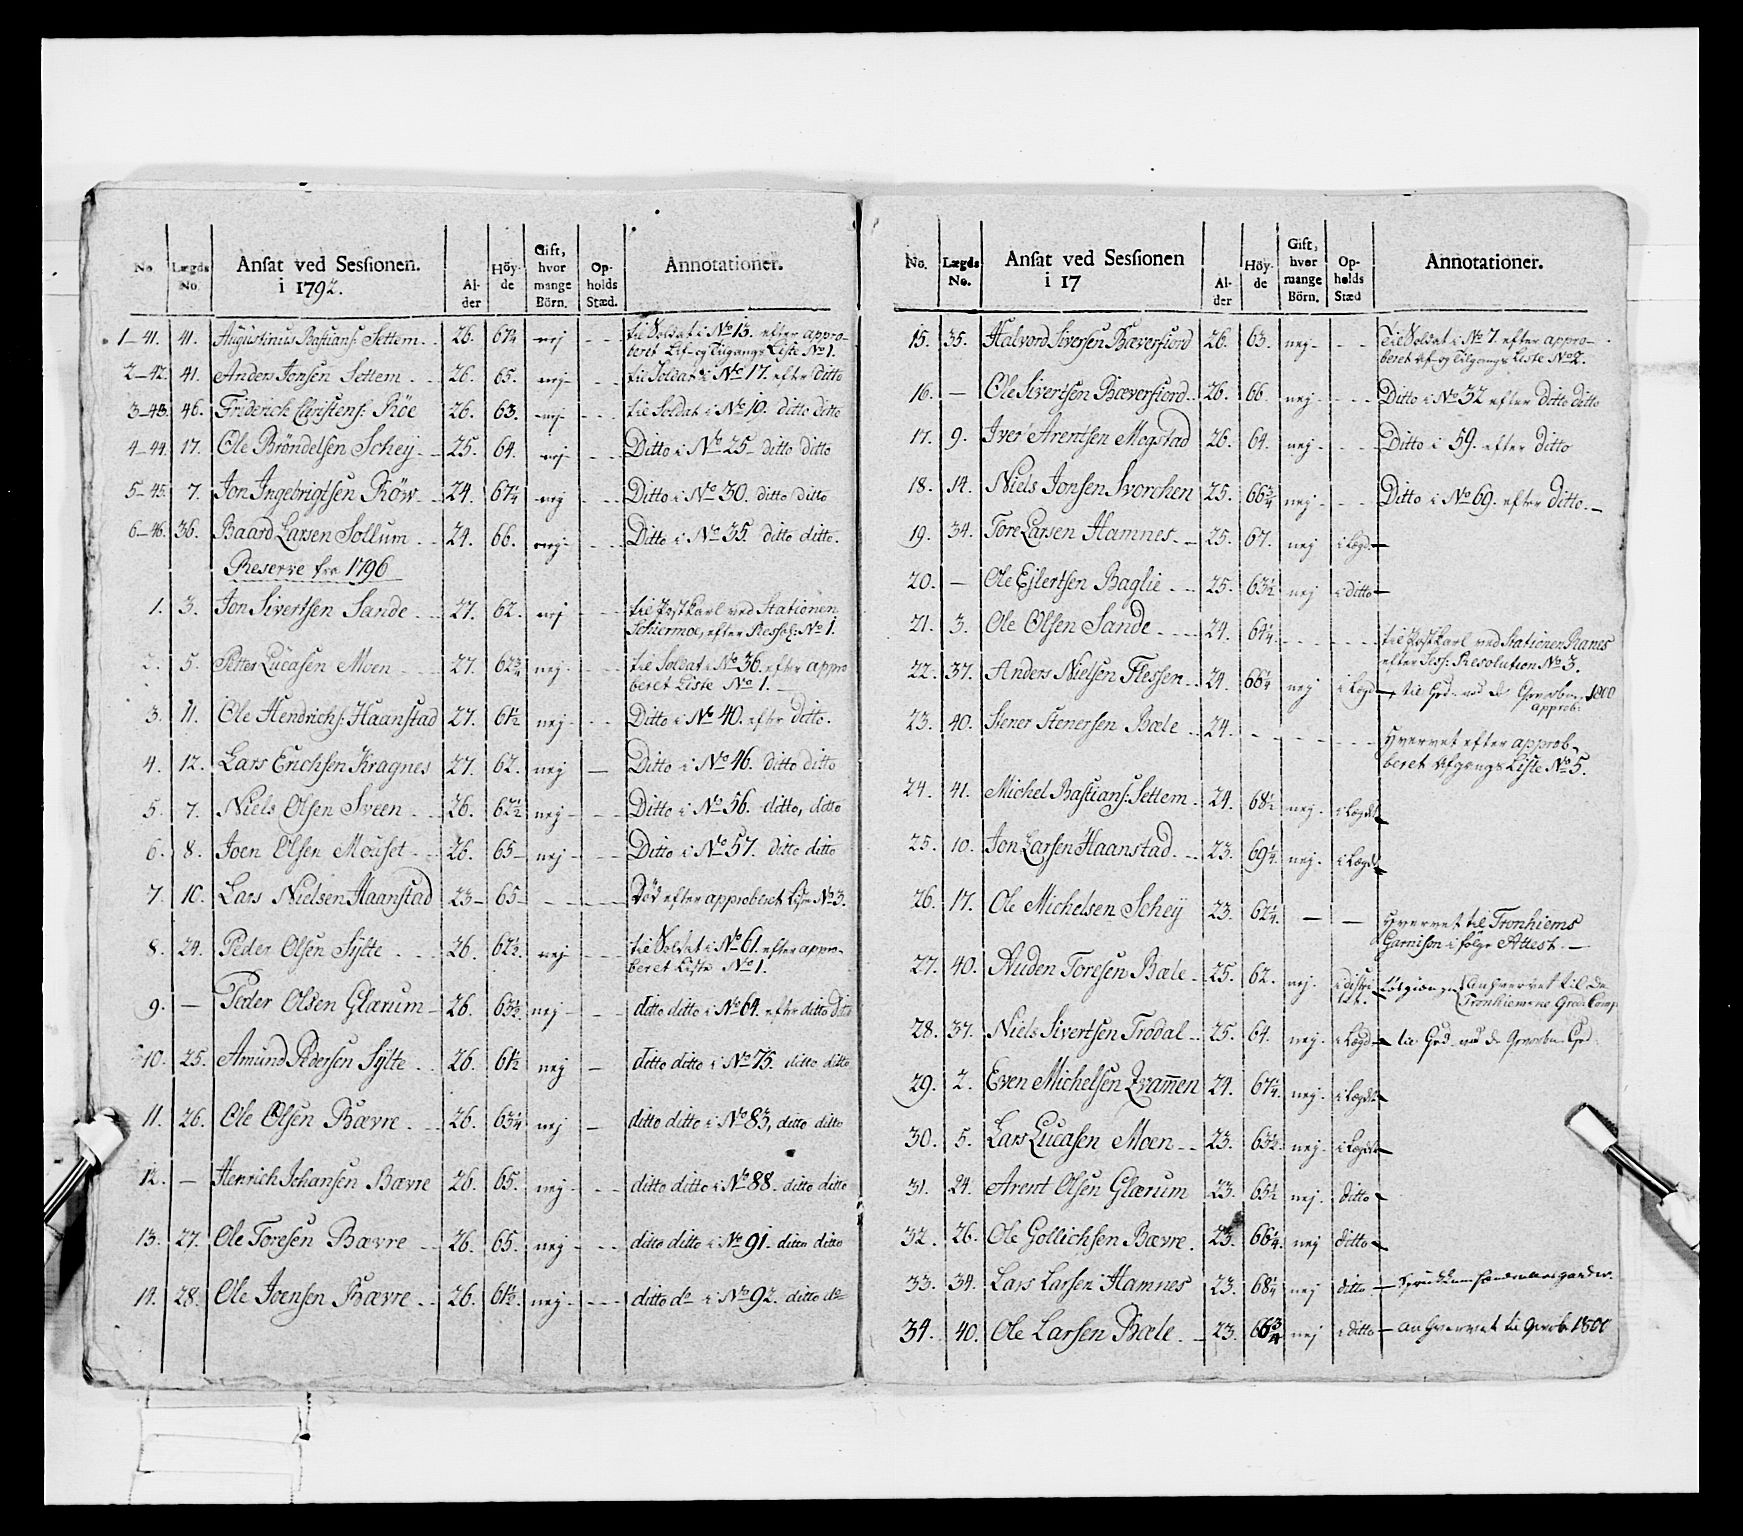 No. Lægds No. Ansat ved Sessionen. i 1792. Al-der Höy-de Gift, hvor mange Börn. Op-holds Stæd. Annotationer.
1–41. 41. Augustinus Bastians: Settem 26. 67¼ nej - - til Soldat i No 13. efter appro-
beret Lif- og Tilgangs Liste No 1.
2–42. 41. Anders Jonsen Settem 26. 65. nej - - til Soldat i No 17. efter ditto
3–43. 46. Friderich Christens: Röe 26. 63. nej - - til Soldat i No 10. ditto ditto
4–44. 17. Ole Bröndelsen Schey 25. 64. nej - - Ditto i No 25 - ditto ditto
5–45. 7. Jon Ingebrigtsen Röw 24. 67¼ nej - - Ditto i No 30. ditto ditto
6–46. 36. Baard Larsen Sollum 24. 66. nej - - Ditto i No 35. ditto ditto.
Reserve fra 1796
1. 3. Jon Sivertsen Sande 27. 62. nej - - til Postkarl ved Stationen
Schiermoe, efter Ressol: No 1.
2. 5. Petter Lucasen Moen 27. 62¾ nej - - til Soldat i No 36. efter appro
beret Liste No 1.
3. 11. Ole Hendrichs: Haanstad 27. 61½ nej - - Ditto i No 40. efter ditto.
4. 12. Lars Erichsen Kragnes 27. 62. nej — Ditto i No 46. ditto ditto
5. 7. Niels Olsen Sveen 26. 62½ nej - - Ditto i No 56. ditto, ditto
6. 8. Joen Olsen Mouset 26. 65 - nej - - Ditto i No 57. ditto ditto
7. 10. Lars Nielsen Haanstad 23 - 65 - - - Död efter approberet Liste No 3.
8. 24. Peder Olsen Sylte 26. 62½. nej - - til Soldat i No 61. efter appro-
beret Liste No 1.
9. — Peder Olsen Glærum 26. 63½. nej - - ditto ditto i No 64. efter ditto ditto
10. 25. Amund Pedersen Sylte 26. 61½ nej — ditto ditto i No 75. ditto ditto
11. 26. Ole Olsen Bævre 26. 63¼ nej — ditto ditto i No 83, ditto ditto
12. — Henrich Johansen Bævre 26. 65. nej - - ditto ditto i No 88. ditto ditto
13. 27. Ole Toresen Bævre 26. 65. nej - - ditto ditto i No 91. ditto ditto
14. 28. Ole Joensen Bævre 26. 61½. nej - - ditto do i No 92. ditto do
No. Lægds No. Ansat ved Sessionen i 17 Al-der Höy-de Gift, hvor mange Börn. Op-holds Stæd Annotationer.
15. 35. Halvord Siversen Bæverfiord 26. 63. nej - - til Soldat i No 7. efter appro-
beret Af- og Tilgangs Liste No 2.
16. — Ole Sivertsen Bæverfiord 26. 66. nej - - Ditto i No 32 efter ditto ditto
17. 9. Iver Arentsen Mogstad 26. 64. nej - - Ditto i 59. efter ditto
18. 14. Niels Jonsen Svorchen 25. 66¾ nej - - Ditto i No 69. efter ditto.
19. 34. Tore Larsen Hamnes 25. 67. nej i Lægd.
20. — Ole Ejlertsen Baglie 25. 63½ nej i ditto
21. 3. Ole Olsen Sande 24. 64¼ - - til Postkarl ved Stationen Ranes
efter Sess: Resolution No 3.
22. 37. Anders Nielsen Flessen 24. 66¼ nej i Lægd til Grd. ved d 1800
approb:
23. 40. Stener Stenersen Bæle 24. - - Hvervet efter approb-
beret Afgangs Liste No 5.
24. 41. Michel Bastians: Settem 24. 68½ nej. i Lægdet
25. 10. Jon Larsen Haanstad 23. 69¼. nej. i Lægdet
26. 17. Ole Michelsen Schey 23. 62¼. — — Hvervet til Tronhiems
Garnison i fölge Attest.
27. 40. Auden Toresen Bæle 25. 62. nej. i distri-
ctet. Löigiangn: Anhvervet til de
Tronhiemske Gred: Comp
28. 37. Niels Sivertsen Trodal 25. 64. nej. i Lægd til Grd. ved d
29. 2. Even Michelsen Qvamen 24. 67¼. nej. i Lægdet
30. 5. Lars Lucasen Moen 23. 63½. nej. i Lægdet
31. 24. Arent Olsen Glærum 23. 65½ nej. ditto
32. 26. Ole Gollichsen Bævre. 23. 66¼. nej ditto
33. 34. Lars Larsen Hamnes 23. 68¼ nej ditto
34. 40. Ole Larsen Bæle 23. 66¾ nej i ditto anhvervet til 1800